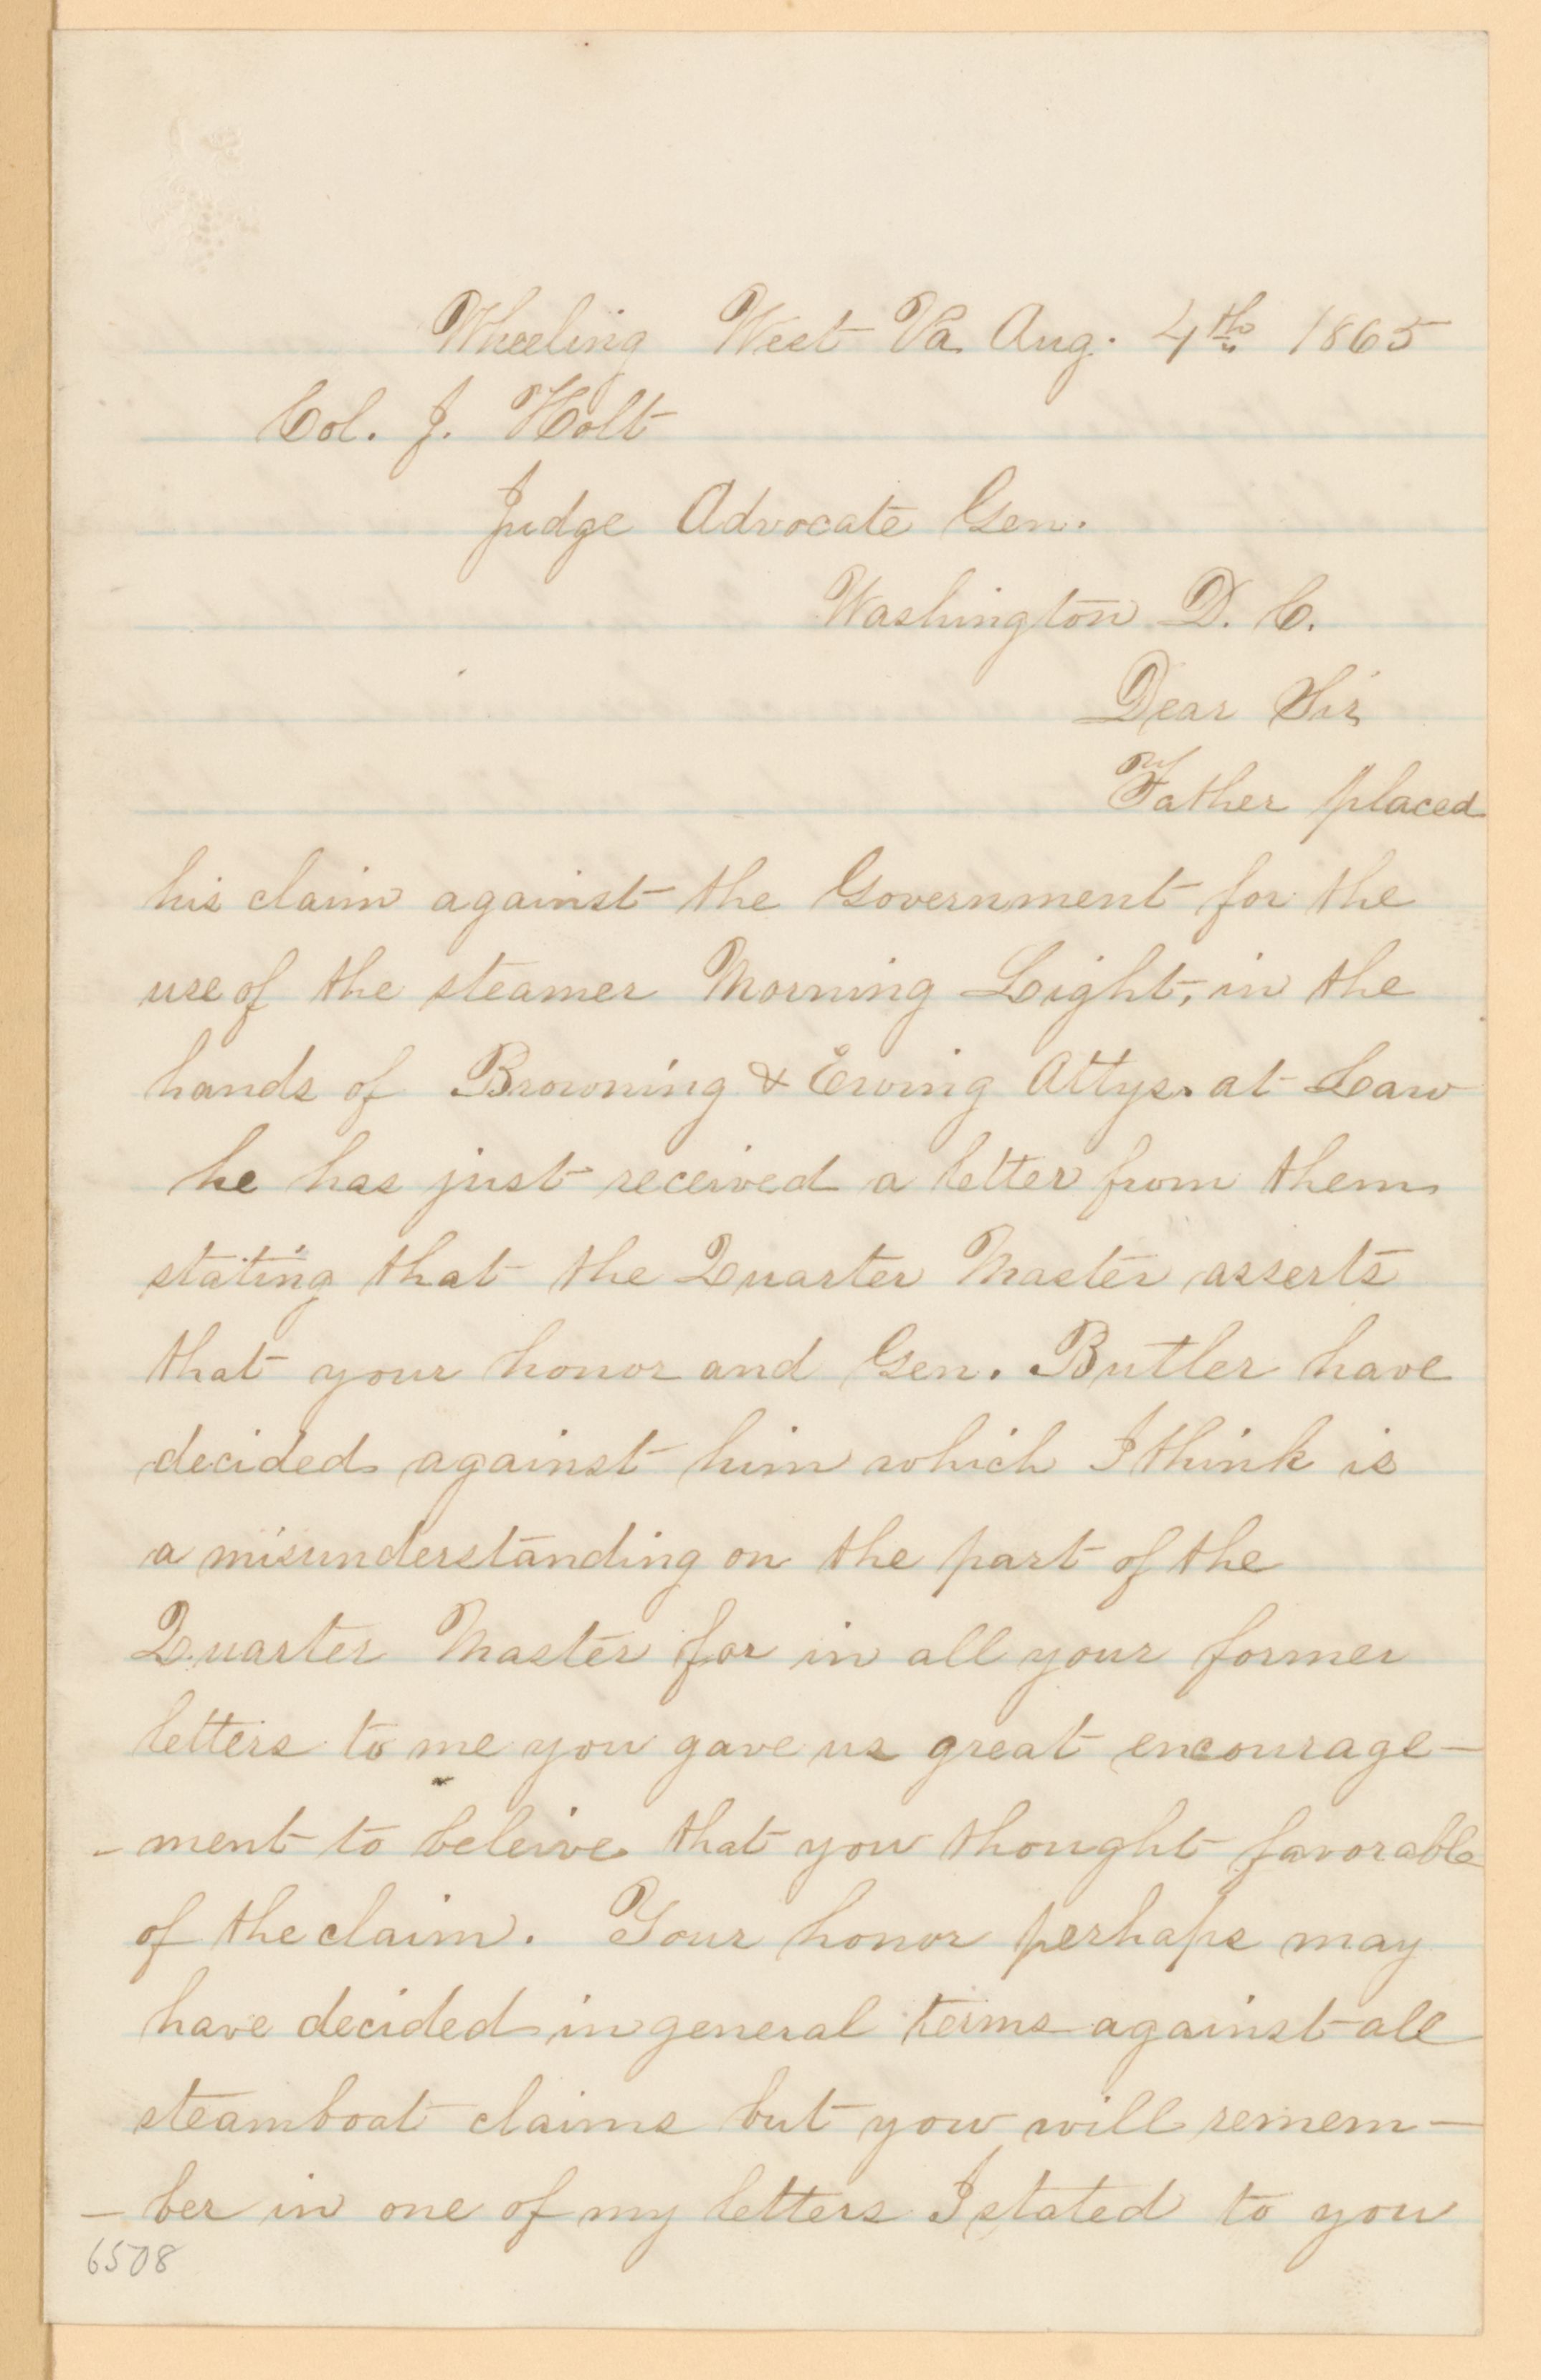 Wheeling West Va Aug. 4th 1865
Col. J. Holt
Judge Advocate Gen.
Washington D. C.
Dear Sir
my
Father placed
his claim against the Government for the
use of the steamer Morning Light, in the
hands of Browning & Ewing Attys. at Law
he has just received a letter from them
stating that the Quarter Master asserts
that your honor and Gen. Butler have
decided against him which I think is
a misunderstanding on the part of the
Quarter Master for in all your former
letters to me you gave us great encourage-
-ment to beleive that you thought favorable
of the claim. Your honor perhaps may
have decided in general terms against all
steamboat claims but you will remem-
-ber in one of my letters I stated to you
6508